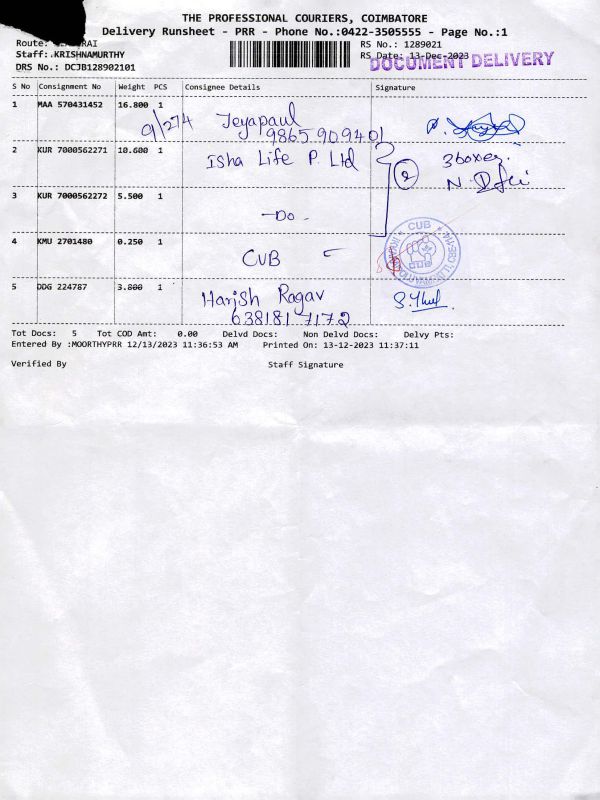 THE PROFESSIONAL COURIERS, COIMBATORE
Delivery Runsheet - PRR - Phone No.:0422-3505555 - Page No.:1
Route: RAI
RS No.: 1289021
Staff: KRISHNAMURTHY
RS Date: 13-Dec-2023
DOCUMENT DELIVERY
DRS No.: DCJB128902101
S No Consignment No Weight PCS Consignee Details Signature
1 MAA 570431452 16.800 1
9/274 Jeyapaul
9865909401
2 KUR 7000562271 10.600 1 Isha Life P. Ltd
2 3 boxes.
3 KUR 7000562272 5.500 1
-Do-
CUB
4 KMU 2701480 0.250 1
CUB
5 DDG 224787 3.800 1 Harish Ragav
638181 7172
Tot Docs: 5 Tot COD Amt: 0.00 Delvd Docs: Non Delvd Docs: Delvy Pts:
Entered By :MOORTHYPRR 12/13/2023 11:36:53 AM Printed On: 13-12-2023 11:37:11
Verified By Staff Signature